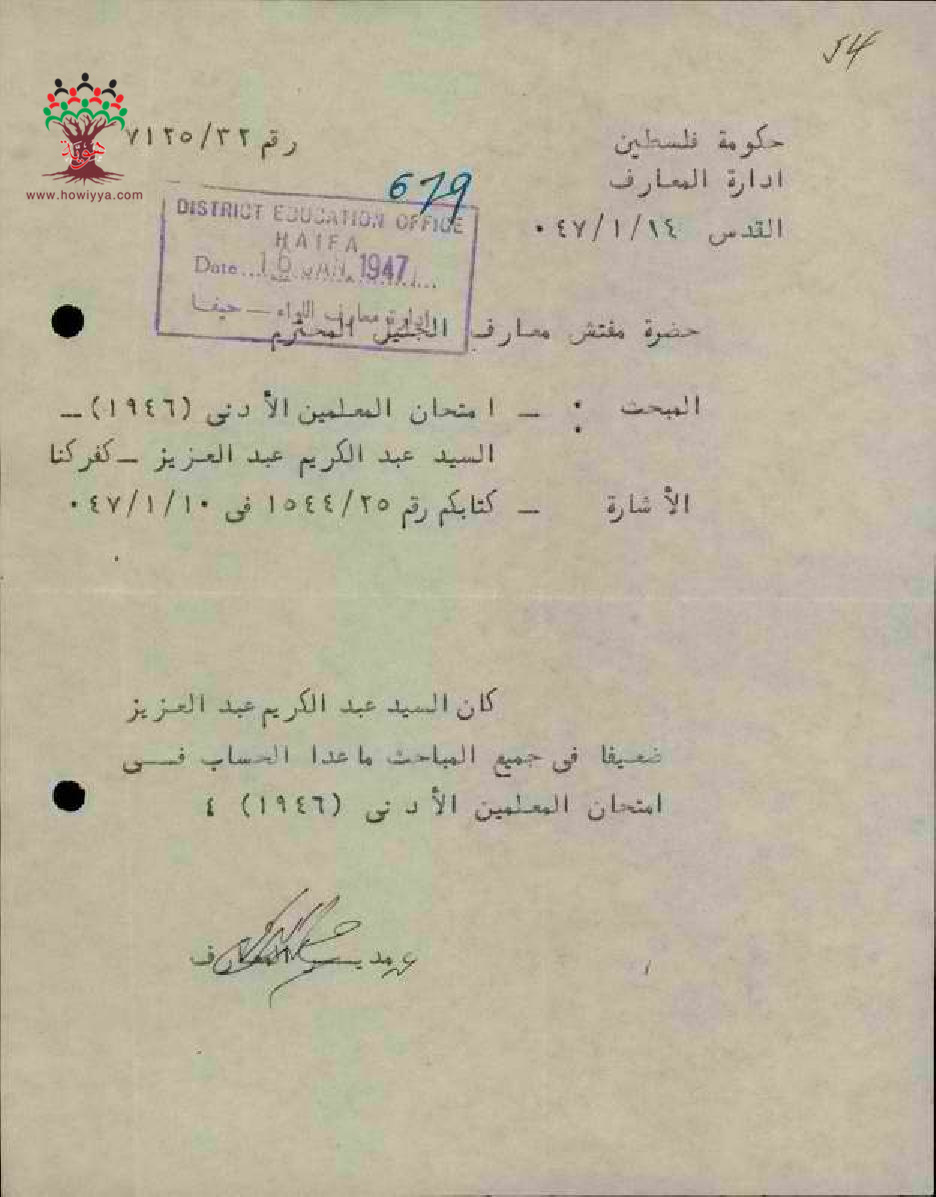 54
حكومة فلسطين
رقم ٧١٢٥/٣٢
ادارة المعارف
القدس ٤٧/١/١٤٠
هوية
www.howiyya.com
679
DISTRICT EDUCATION OFFICE
HAIFA
Date... 16 JAN 1947
ادارة معارف اللواء — حيفا
حضرة مفتش معارف الجليل المحترم
المبحث : — امتحان المعلمين الأدنى (١٩٤٦) —
السيد عبد الكريم عبد العزيز — كفركنا
الأشارة — كتابكم رقم ١٥٤٤/٢٥ فى ٤٧/١/١٠٠
كان السيد عبد الكريم عبد العزيز
ضعيفا فى جميع المباحث ماعدا الحساب فـــى
امتحان المعلمين الأدنى (١٩٤٦) ٤
ع مديـــر المعارف